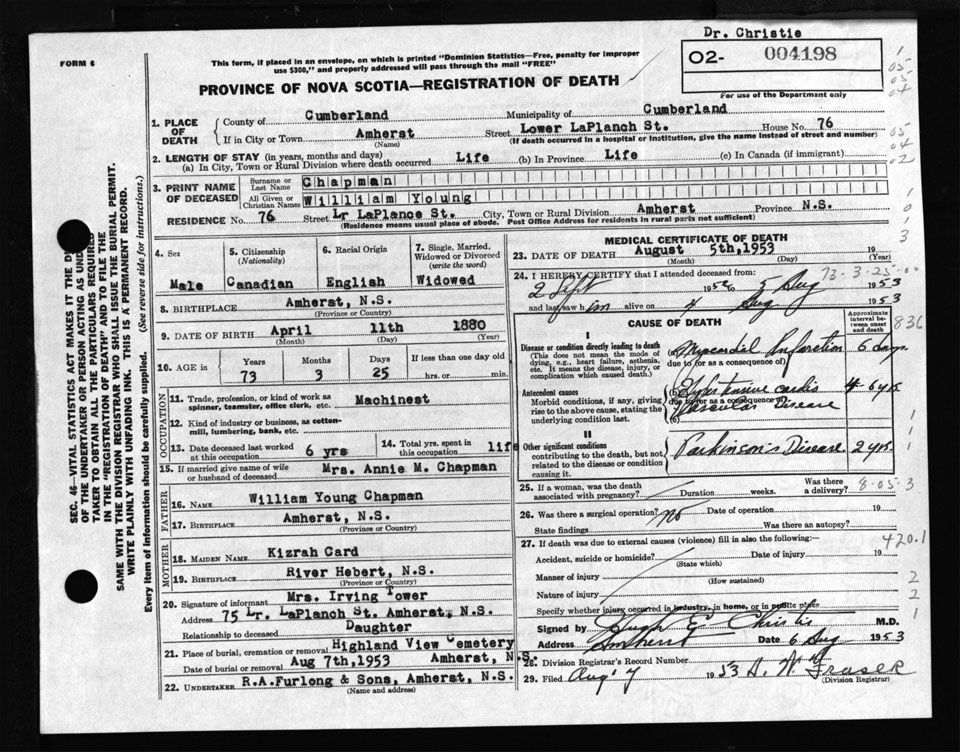 Dr. Christie
FORM 6
This form, if placed in an envelope, on which is printed "Dominion Statistics—Free, penalty for improper
use $300," and properly addressed will pass through the mail "FREE"
02- 004198
For use of the Department only
PROVINCE OF NOVA SCOTIA—REGISTRATION OF DEATH
1. PLACE OF DEATH
County of Cumberland Municipality of Cumberland
If in City or Town Amherst Street Lower LaPlanch St. House No. 76
(Name) (If death occurred in a hospital or institution, give the name instead of street and number)
2. LENGTH OF STAY (in years, months and days)
(a) In City, Town or Rural Division where death occurred Life (b) In Province Life (c) In Canada (if immigrant)
3. PRINT NAME OF DECEASED
Surname or Last Name Chapman
All Given or Christian Names William Young
RESIDENCE No. 76 Street Lr LaPlance St. City, Town or Rural Division Amherst Province N.S.
(Residence means usual place of abode. Post Office Address for residents in rural parts not sufficient)
4. Sex Male
5. Citizenship (Nationality) Canadian
6. Racial Origin English
7. Single, Married, Widowed or Divorced (write the word) Widowed
8. BIRTHPLACE Amherst, N.S.
(Province or Country)
9. DATE OF BIRTH April 11th 1880
(Month) (Day) (Year)
10. AGE in Years 73 Months 3 Days 25 If less than one day old
hrs. or min.
OCCUPATION
11. Trade, profession, or kind of work as
spinner, teamster, office clerk, etc. Machinest
12. Kind of industry or business, as cotton-
mill, lumbering, bank, etc.
13. Date deceased last worked
at this occupation 6 yrs
14. Total yrs. spent in
this occupation life
15. If married give name of wife
or husband of deceased Mrs. Annie M. Chapman
FATHER
16. Name William Young Chapman
17. Birthplace Amherst, N.S.
(Province or Country)
MOTHER
18. Maiden Name Kizrah Card
19. Birthplace River Hebert, N.S.
(Province or Country)
20. Signature of informant Mrs. Irving Tower
Address 75 Lr. LaPlanch St. Amherst, N.S.
Relationship to deceased Daughter
21. Place of burial, cremation or removal Highland View Cemetery
Date of burial or removal Aug 7th, 1953 Amherst, N.S.
22. Undertaker R.A.Furlong & Sons, Amherst, N.S.
(Name and address)
MEDICAL CERTIFICATE OF DEATH
23. DATE OF DEATH August 5th, 1953 19
(Month) (Day) (Year)
73-3-25-00
24. I HEREBY CERTIFY that I attended deceased from:
2 Sept 1952 to 5 Aug 1953
and last saw him alive on 4 Aug 1953
CAUSE OF DEATH
Approximate interval between onset and death
836
I
Disease or condition directly leading to death
(This does not mean the mode of
dying, e.g., heart failure, asthenia,
etc. It means the disease, injury, or
complication which caused death.)
(a) Myocardial Infarction 6 days
due to (or as a consequence of)
Antecedent causes
Morbid conditions, if any, giving
rise to the above cause, stating the
underlying condition last.
(b) Hypertensive cardio 4-6 yrs
due to (or as a consequence of)
Vascular Disease
(c)
II
Other significant conditions
contributing to the death, but not
related to the disease or condition
causing it.
Parkinson's Disease. 2 yrs.
25. If a woman, was the death
associated with pregnancy? Duration weeks. Was there
a delivery?
8-05-3
26. Was there a surgical operation? no Date of operation 19
State findings Was there an autopsy?
27. If death was due to external causes (violence) fill in also the following:—
420.1
Accident, suicide or homicide? Date of injury 19
(State which)
Manner of injury
(How sustained)
Nature of injury
Specify whether injury occurred in industry, in home, or in public place
Signed by Hugh E Christie M.D.
Address Amherst Date 6 Aug 1953
28. Division Registrar's Record Number
29. Filed Aug 7 1953
(Division Registrar)
SEC. 46—VITAL STATISTICS ACT MAKES IT THE
OF THE UNDERTAKER OR PERSON ACTING AS
TAKER TO OBTAIN ALL THE PARTICULARS REQUIRED
IN THE "REGISTRATION OF DEATH" AND TO FILE THE
SAME WITH THE DIVISION REGISTRAR WHO SHALL ISSUE THE BURIAL PERMIT.
WRITE PLAINLY WITH UNFADING INK. THIS IS A PERMANENT RECORD.
Every item of information should be carefully supplied. (See reverse side for instructions.)